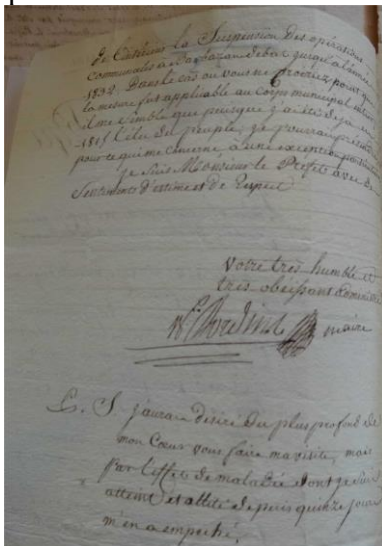 de Castelnau la Suspension des opérations
communales à Barbazan debat jusqu'à l'année
1832. Dans le cas où vous ne croiriez pour que
la mesure fut applicable au Corps municipal
il me semble que puisque j'ai été déjà en
1815 l'élu du peuple, je pourrais
pour ce qui me concerne à une exception
je suis Monsieur le Préfet avec des
Sentimens d'estime et de Respect
votre très humble et
très obéissant
maire
P. S. j'aurai désiré du plus profond de
mon Cœur vous faire ma visite, mais
Par l'effet de maladie dont je suis
atteint et alité depuis quinze jours
m'en a empeché.